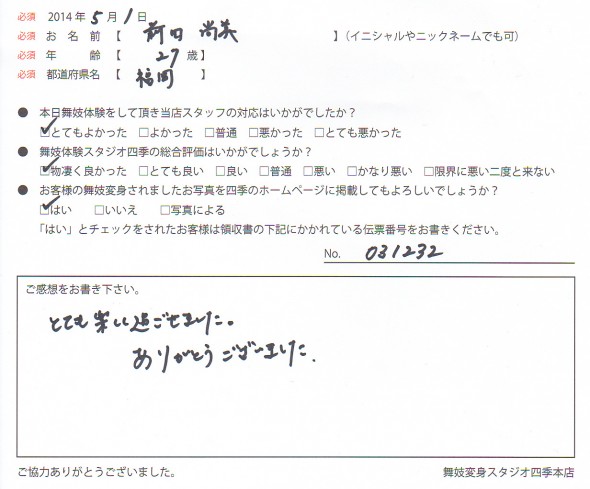 必須 2014年 5月 1日
必須 お名前【 前田 尚美 】(イニシャルやニックネームでも可)
必須 年齢【 27歳】
必須 都道府県名【 福岡 】
● 本日舞妓体験をして頂き当店スタッフの対応はいかがでしたか？
☑とてもよかった □よかった □普通 □悪かった □とても悪かった
● 舞妓体験スタジオ四季の総合評価はいかがでしょうか？
☑物凄く良かった □とても良い □良い □普通 □悪い □かなり悪い □限界に悪い二度と来ない
● お客様の舞妓変身されましたお写真を四季のホームページに掲載してもよろしいでしょうか？
☑はい □いいえ □写真による
「はい」とチェックをされたお客様は領収書の下記にかかれている伝票番号をお書きください。
No. 031232
ご感想をお書き下さい。
とても楽しく過ごせました。
ありがとうございました.
ご協力ありがとうございました。 舞妓変身スタジオ四季本店